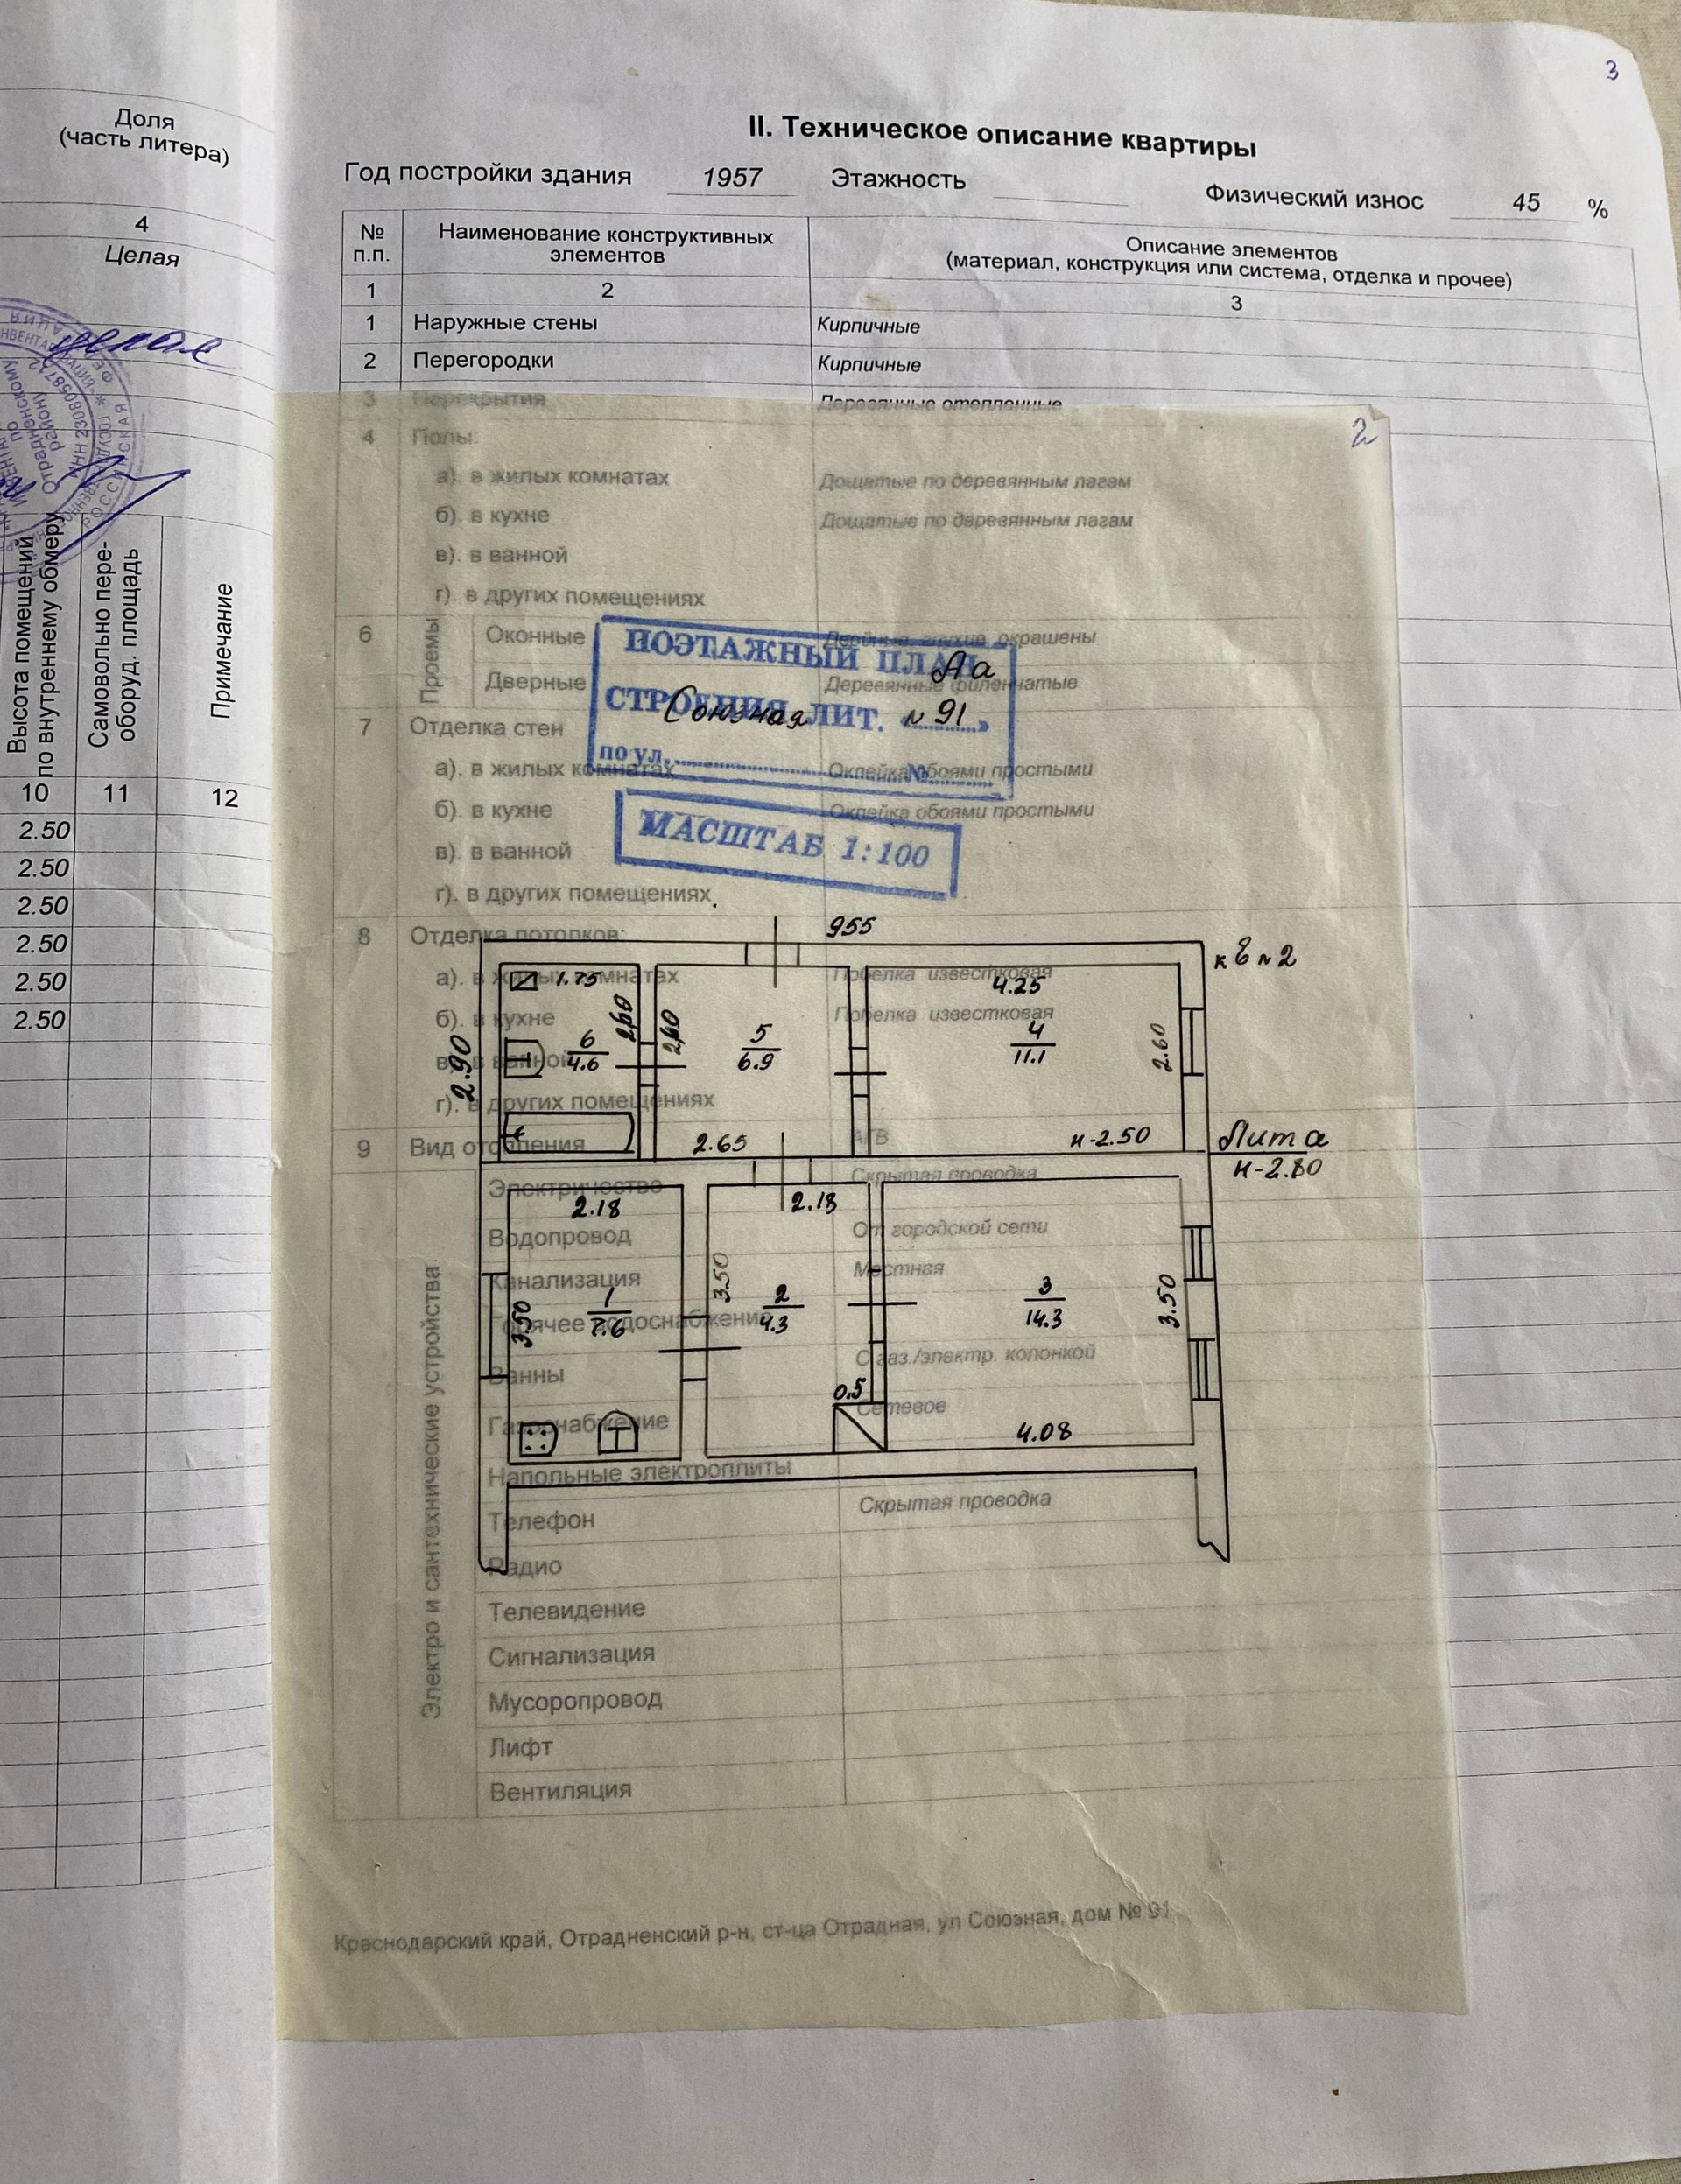 3
Доля
(часть литера)
4
Целая
целая
РОССИЙСКАЯ
ИНН 2308058712
по
Отрадненскому
району
Высота помещений
по внутреннему обмеру
Самовольно пере-
оборуд. площадь
Примечание
10 11 12
2.50
2.50
2.50
2.50
2.50
2.50
II. Техническое описание квартиры
Год постройки здания 1957 Этажность Физический износ 45 %
№
п.п.
Наименование конструктивных
элементов
Описание элементов
(материал, конструкция или система, отделка и прочее)
1 2 3
1 Наружные стены Кирпичные
2 Перегородки Кирпичные
3 Перекрытия Деревянные отепленные
2
4 Полы:
а). в жилых комнатах Дощатые по деревянным лагам
б). в кухне Дощатые по деревянным лагам
в). в ванной
г). в других помещениях
6 Проемы Оконные Двойные, глухие, окрашены
Дверные Деревянные филенчатые
ПОЭТАЖНЫЙ ПЛАН
Аа
СТРОЕНИЯ ЛИТ.
Союзная № 91
по ул. №
7 Отделка стен
а). в жилых комнатах Оклейка обоями простыми
б). в кухне Оклейка обоями простыми
в). в ванной
г). в других помещениях
МАСШТАБ 1:100
8 Отделка потолков:
а). в жилых комнатах Побелка известковая
б). в кухне Побелка известковая
в). в ванной
г). в других помещениях
9 Вид отопления АГВ
Электро и сантехнические устройства
Электричество Скрытая проводка
Водопровод От городской сети
Канализация Местная
Горячее водоснабжение
Ванны С газ./электр. колонкой
Газоснабжение Сетевое
Напольные электроплиты
Телефон Скрытая проводка
Радио
Телевидение
Сигнализация
Мусоропровод
Лифт
Вентиляция
955
кв №2
1.75
4.25
2.60
2.60
2.90
6
4.6
5
6.9
4
11.1
2.60
2.65
н-2.50
Лит а
Н-2.80
2.18
2.18
3.50
3.50
1
7.6
2
4.3
3
14.3
3.50
0.5
4.08
Краснодарский край, Отрадненский р-н, ст-ца Отрадная, ул Союзная, дом № 91